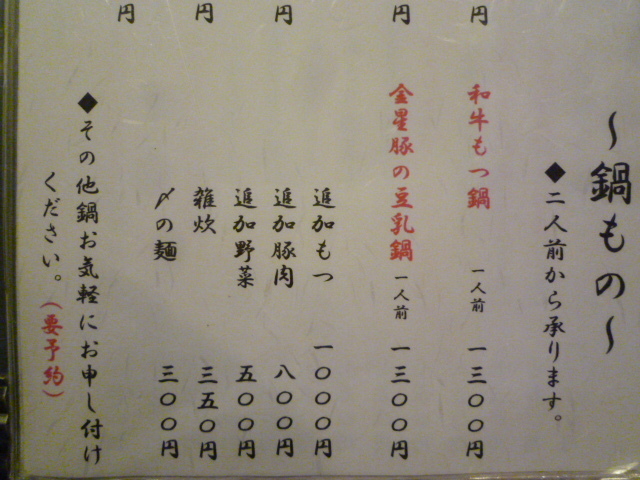 ～鍋もの～
◆二人前から承ります。
和牛もつ鍋 一人前 一三〇〇円
金星豚の豆乳鍋 一人前 一三〇〇円
追加もつ 一〇〇〇円
追加豚肉 八〇〇円
追加野菜 五〇〇円
雑炊 三五〇円
〆の麺 三〇〇円
◆その他鍋お気軽にお申し付け
ください。(要予約)
円
円
円
円
円